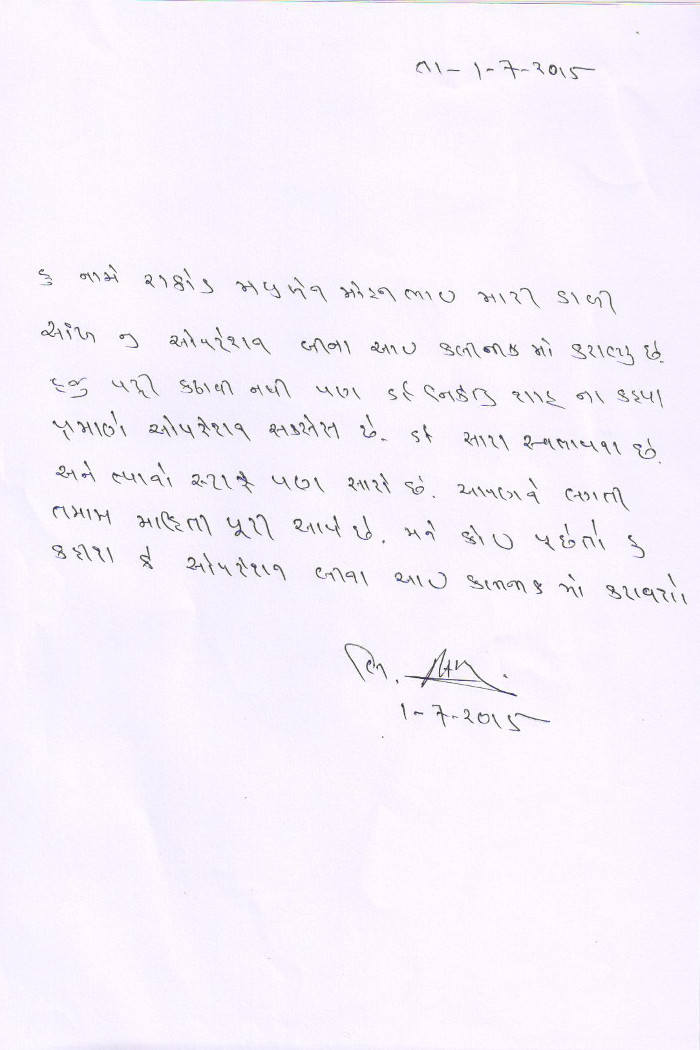 તા- ૧-૭-૨૦૧૫
હુ નામે રાઠોડ મધુબેન મોહનભાઇ મારી ડાબી
આંખ નુ ઓપરેશન બીના આઇ કલીનીક માં કરાવ્યુ છે.
હજુ પટ્ટી કઢાવી નથી પણ ડૉ શાહ ના કહયા
પ્રમાણે ઓપરેશન સકસેસ છે. ડૉ સારા સ્વભાવના છે.
અને ત્યાનો સ્ટાફ પણ સારો છે. આપણને લગતી
તમામ માહિતી પૂરી આપે છે. મને કોઇ પૂછેતો હુ
કહીશ કે ઓપરેશન બીના આઇ કલીનીક માં કરાવશો
લિ.
૧-૭-૨૦૧૫